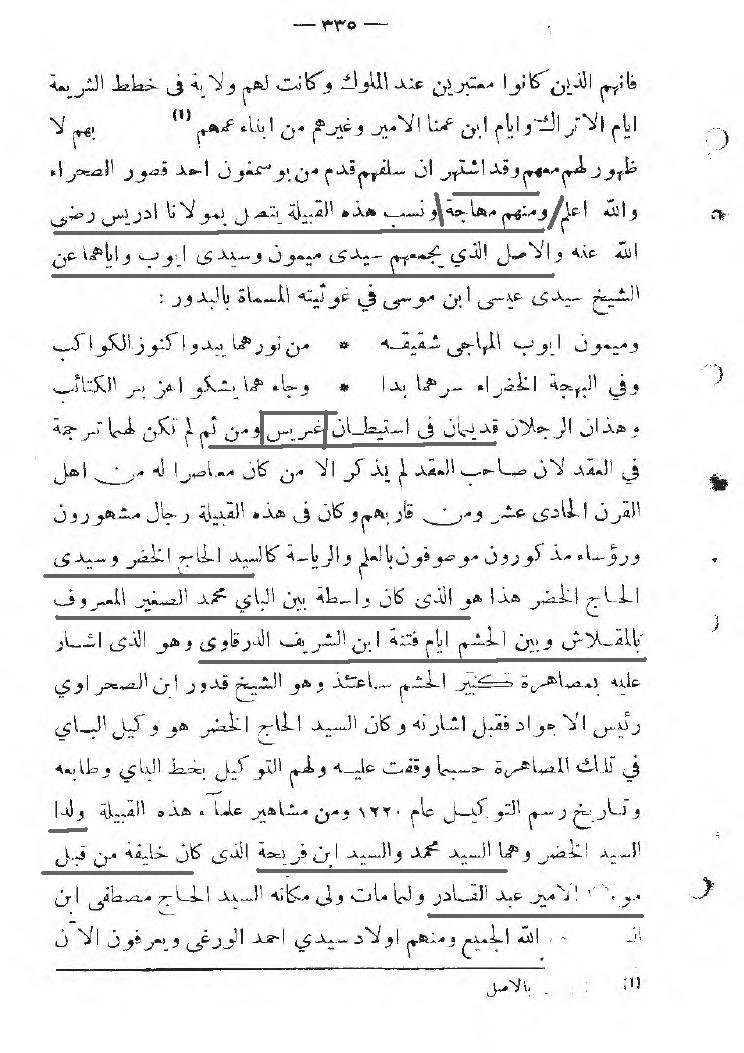 — ٣٣٥ —
فانهم الذين كانوا معتبرين عند الملوك وكانت لهم ولاية فى خطط الشريعة
ايام الاتراك وايام ابن عمنا الامير وغيرهم من ابناء عمهم (١) بهم لا
ظهور لهم معهم وقد اشتهر ان سلفهم قدم من بوسمغون احد قصور الصحراء
والله اعلم ومنهم مهاجة ونسب هذه القبيلة يتصل بمولانا ادريس رضى
الله عنه والاصل الذي يجمعهم سيدى ميمون وسيدى ايوب واياهما عن
الشيخ سيدى عيسى ابن موسى في غوثيته المسماة بالبدور :
وميمون ايوب المهاجى شقيقه * من نورهما يبدوا كنوز الكواكب
وفي البهجة الخضراء سرهما بدا * وجاء هما يشكو اهز بر الكتائب
وهذان الرجلان قديمان فى استيطان غريس ومن ثم لم تكن لهما ترجمة
في العقد لان صاحب العقد لم يذكر الا من كان معاصرا له من اهل
القرن الحادى عشر ومن قاربهم وكان فى هذه القبيلة رجال مشهورون
ورؤساء مذكورون موصوفون بالعلم والرياسة كالسيد الحاج الخضر وسيدى
الحاج الخضر هذا هو الذى كان واسطة بين الباي محمد الصغير المعروف
بالمقلاش وبين الحشم ايام فتنة ابن الشريف الدرقاوى وهو الذى اشار
عليه بمصاهرة كبير الحشم ساعتئذ وهو الشيخ قدور ابن الصحراوي
رئيس الاجواد فقبل اشارته وكان السيد الحاج الخضر هو وكيل الباي
في تلك المصاهرة حسبما وقفت عليه ولهم التوكيل بخط الباي وطابعه
وتاريخ رسم التوكيل عام ١٢٢٠ ومن مشاهير علماء هذه القبيلة ولدا
السيد الخضر وهما السيد محمد والسيد ابن فريحة الذى كان خليفة من قبل
الامير عبد القادر ولما مات ولى مكانه السيد الحاج مصطفى ابن
الله الجميع ومنهم اولاد سيدي احمد الورغى ويعرفون الآن
(١) بالاصل